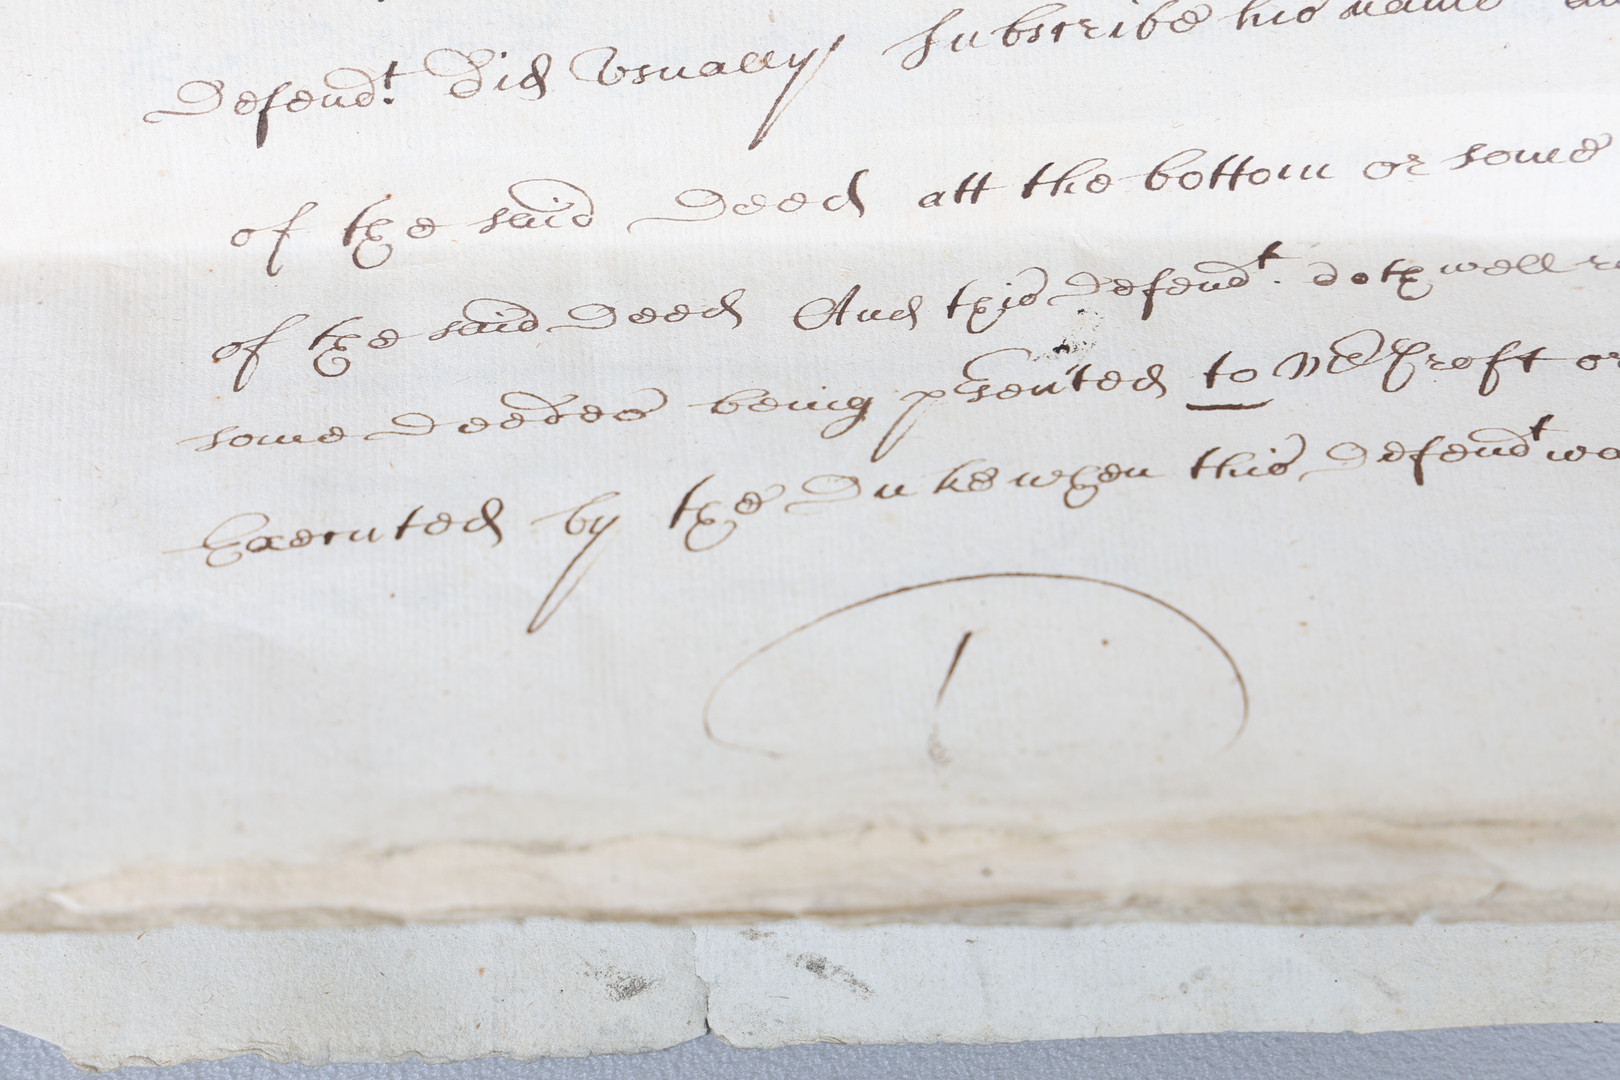 Defendt. Did Usually subscribe his name
of the said Deed att the bottom or some
of the said Deed And this Defendt. doth well
some Deedes being psented to Mr Croft or
Executed by the Duke when this Defendt